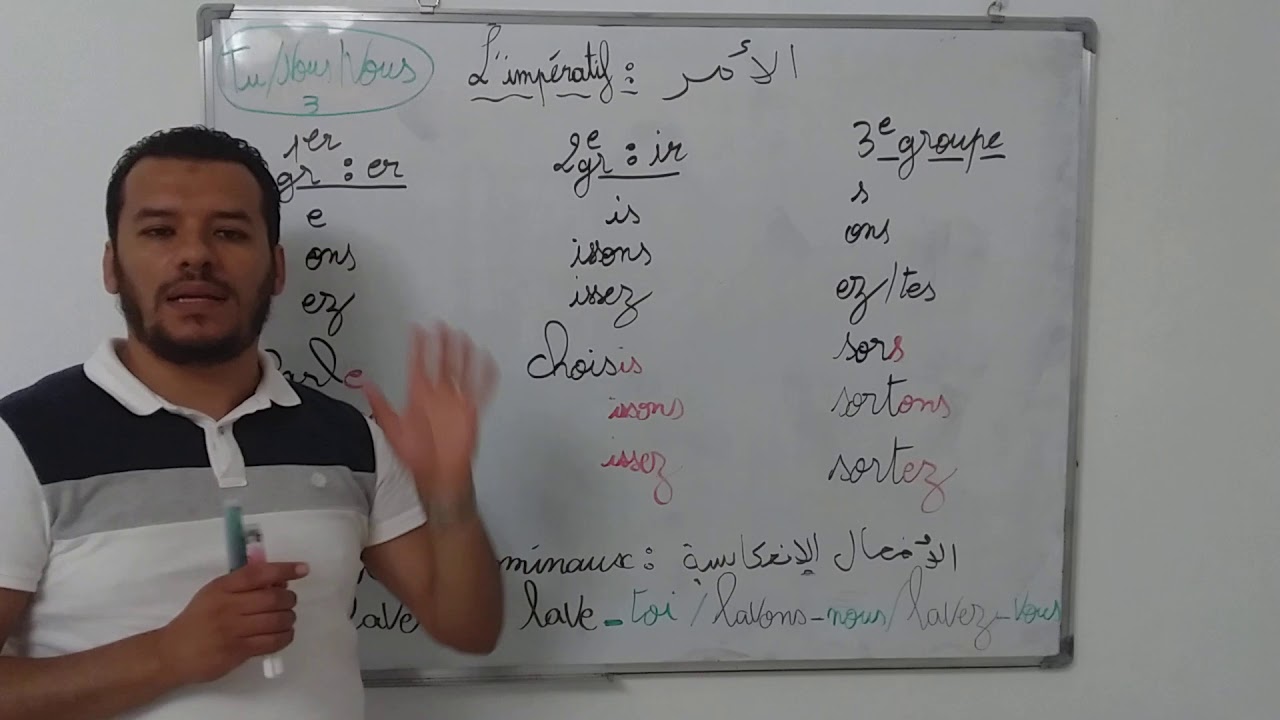 Tu/Nous/Vous
3
L'impératif : الأمر
1er gr : er
e
ons
ez
parle
2e gr : ir
is
issons
issez
choisis
issons
issez
3e groupe
s
ons
ez/tes
sors
sortons
sortez
minaux : الأفعال الإنعكاسية
lave lave-toi / lavons-nous / lavez-vous